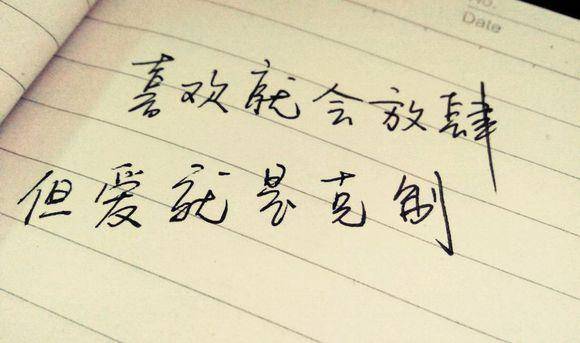 No.
Date
喜欢就会放肆
但爱就是克制